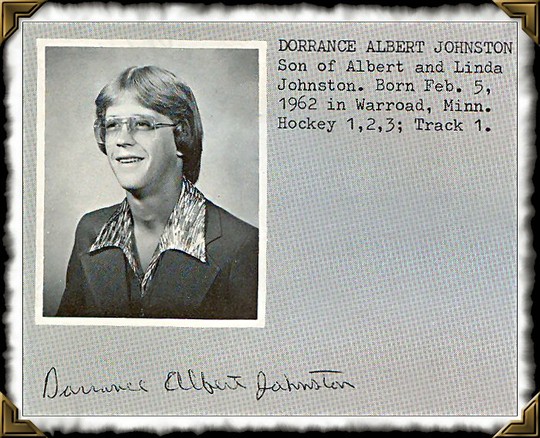 DORRANCE ALBERT JOHNSTON
Son of Albert and Linda
Johnston. Born Feb. 5,
1962 in Warroad, Minn.
Hockey 1,2,3; Track 1.
Dorrance Albert Johnston